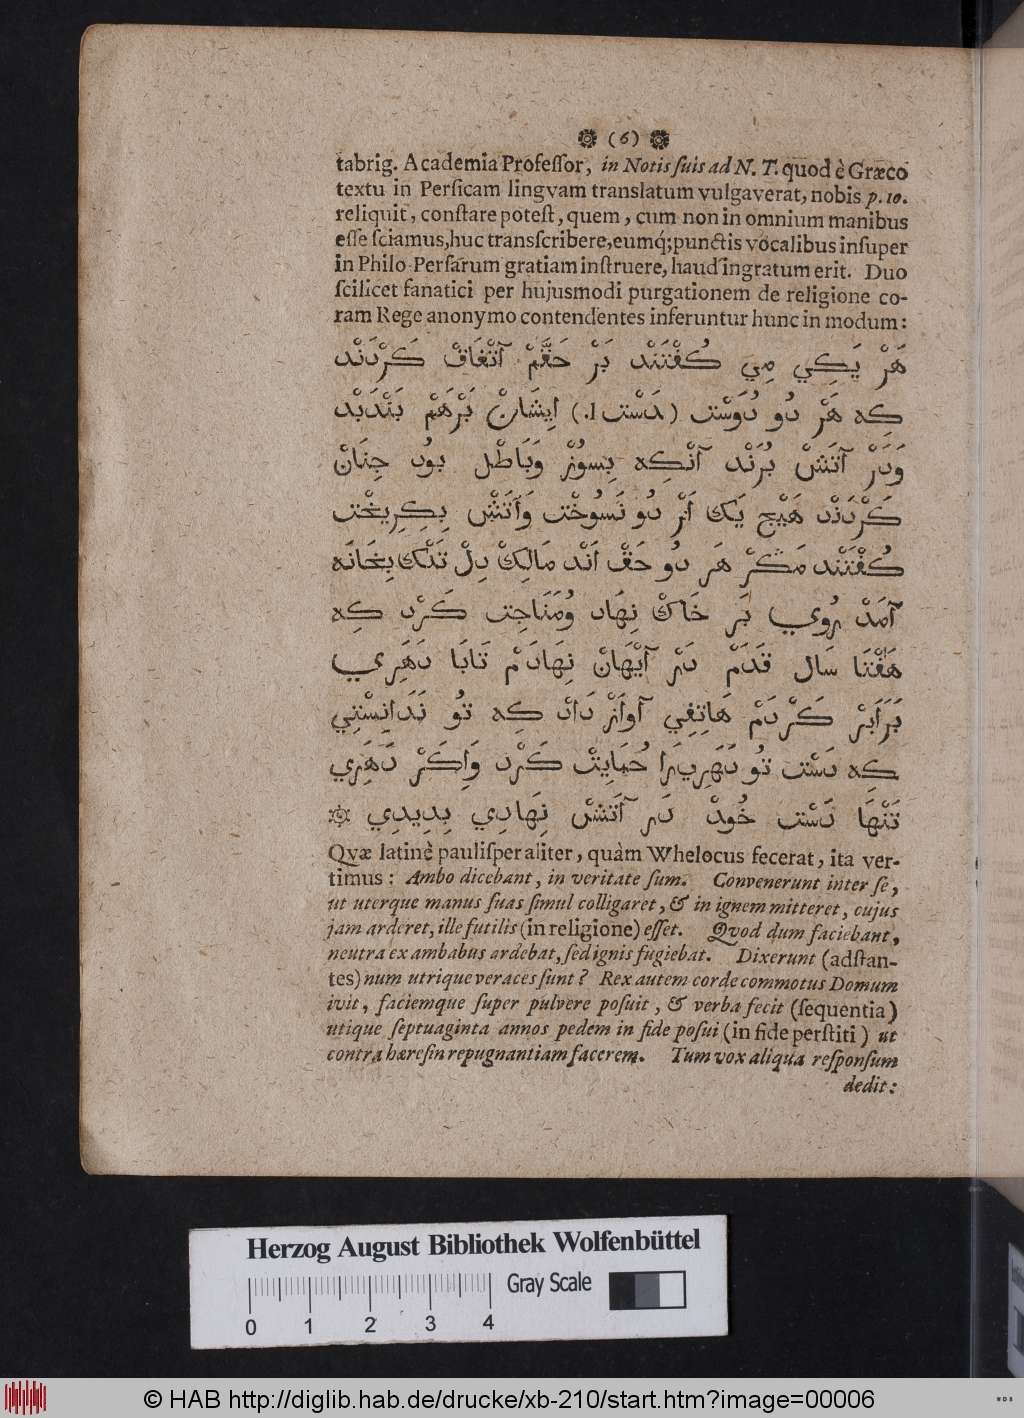 (6)
tabrig. Academia Professor, in Notis suis ad N. T. quod è Græco
textu in Persicam lingvam translatum vulgaverat, nobis p. 10.
reliquit, constare potest, quem, cum non in omnium manibus
esse sciamus, huc transscribere, eumq́; punctis vocalibus insuper
in Philo-Persarum gratiam instruere, haud ingratum erit. Duo
scilicet fanatici per hujusmodi purgationem de religione co-
ram Rege anonymo contendentes inferuntur hunc in modum:
هَرْ يَكِي مِي كُفْتَنْد بَرْ حَقَّمْ آتْغَاقْ كَرْدَنْد
كِه هَرْ دُو دُوَسْت (دَسْت .l) اِيشَانْ بَرْهَمْ بَنْدَبْد
وَدَرْ آتَشْ بُرَنْد آنْكِه بِسوُزْ وَبَاطْل بوُد چِنَانْ
كَرْدَنْد هَيْچ يَك اَزْ دُو نَسُوخْت وَآتَشْ بِكِرِيخْت
كُفْتَنْد مَكَرْ هَر دُو حَقْ اَنْد مَالِكْ دِلْ تَنْك بِخَانَه
آمَدْ رُوي بَر خَاكْ نِهَاد وُمَنَاجِت كَرْد كِه
هَفْتَا سَال قَدَمْ دَرْ آيْهَانْ نِهَادَمْ تَابَا دَهَرِي
بَرَابَرْ كَرْدَمْ هَاتِفِي آوَازْ دَادْ كِه تُو نَدَانِسْتِي
كِه دَسْت تُو دَهَرِيرَا حُمَايِتْ كَرْد وَاكَرْ دَهَرِي
تَنْهَا دَسْت خُودْ دَر آتَشْ نِهَادِي بِدِيدِي
Qvæ latinè paulisper aliter, quàm Whelocus fecerat, ita ver-
timus: Ambo dicebant, in veritate sum. Convenerunt inter se,
ut uterque manus suas simul colligaret, & in ignem mitteret, cujus
jam arderet, ille futilis (in religione) esset. Qvod dum faciebant,
neutra ex ambabus ardebat, sed ignis fugiebat. Dixerunt (adstan-
tes) num utrique veraces sunt? Rex autem corde commotus Domum
ivit, faciemque super pulvere posuit, & verba fecit (sequentia)
utique septuaginta annos pedem in fide posui (in fide perstiti) ut
contra hæresin repugnantiam facerem. Tum vox aliqua responsum
dedit:
Herzog August Bibliothek Wolfenbüttel
Gray Scale
0 1 2 3 4
© HAB http://diglib.hab.de/drucke/xb-210/start.htm?image=00006